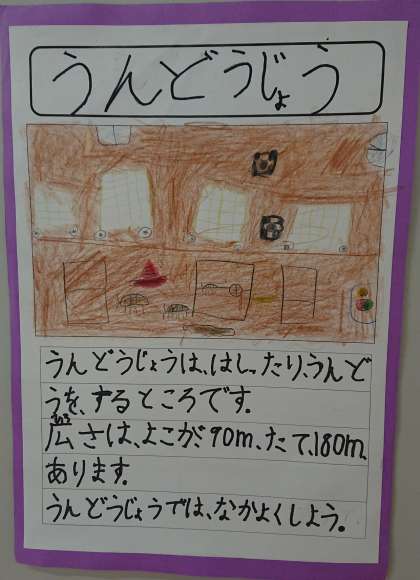 うんどうじょう
うんどうじょうは、はしったり、うんど
うを、するところです。
広さは、よこが、90m、たて、180m、
あります。
うんどうじょうでは、なかよくしよう。